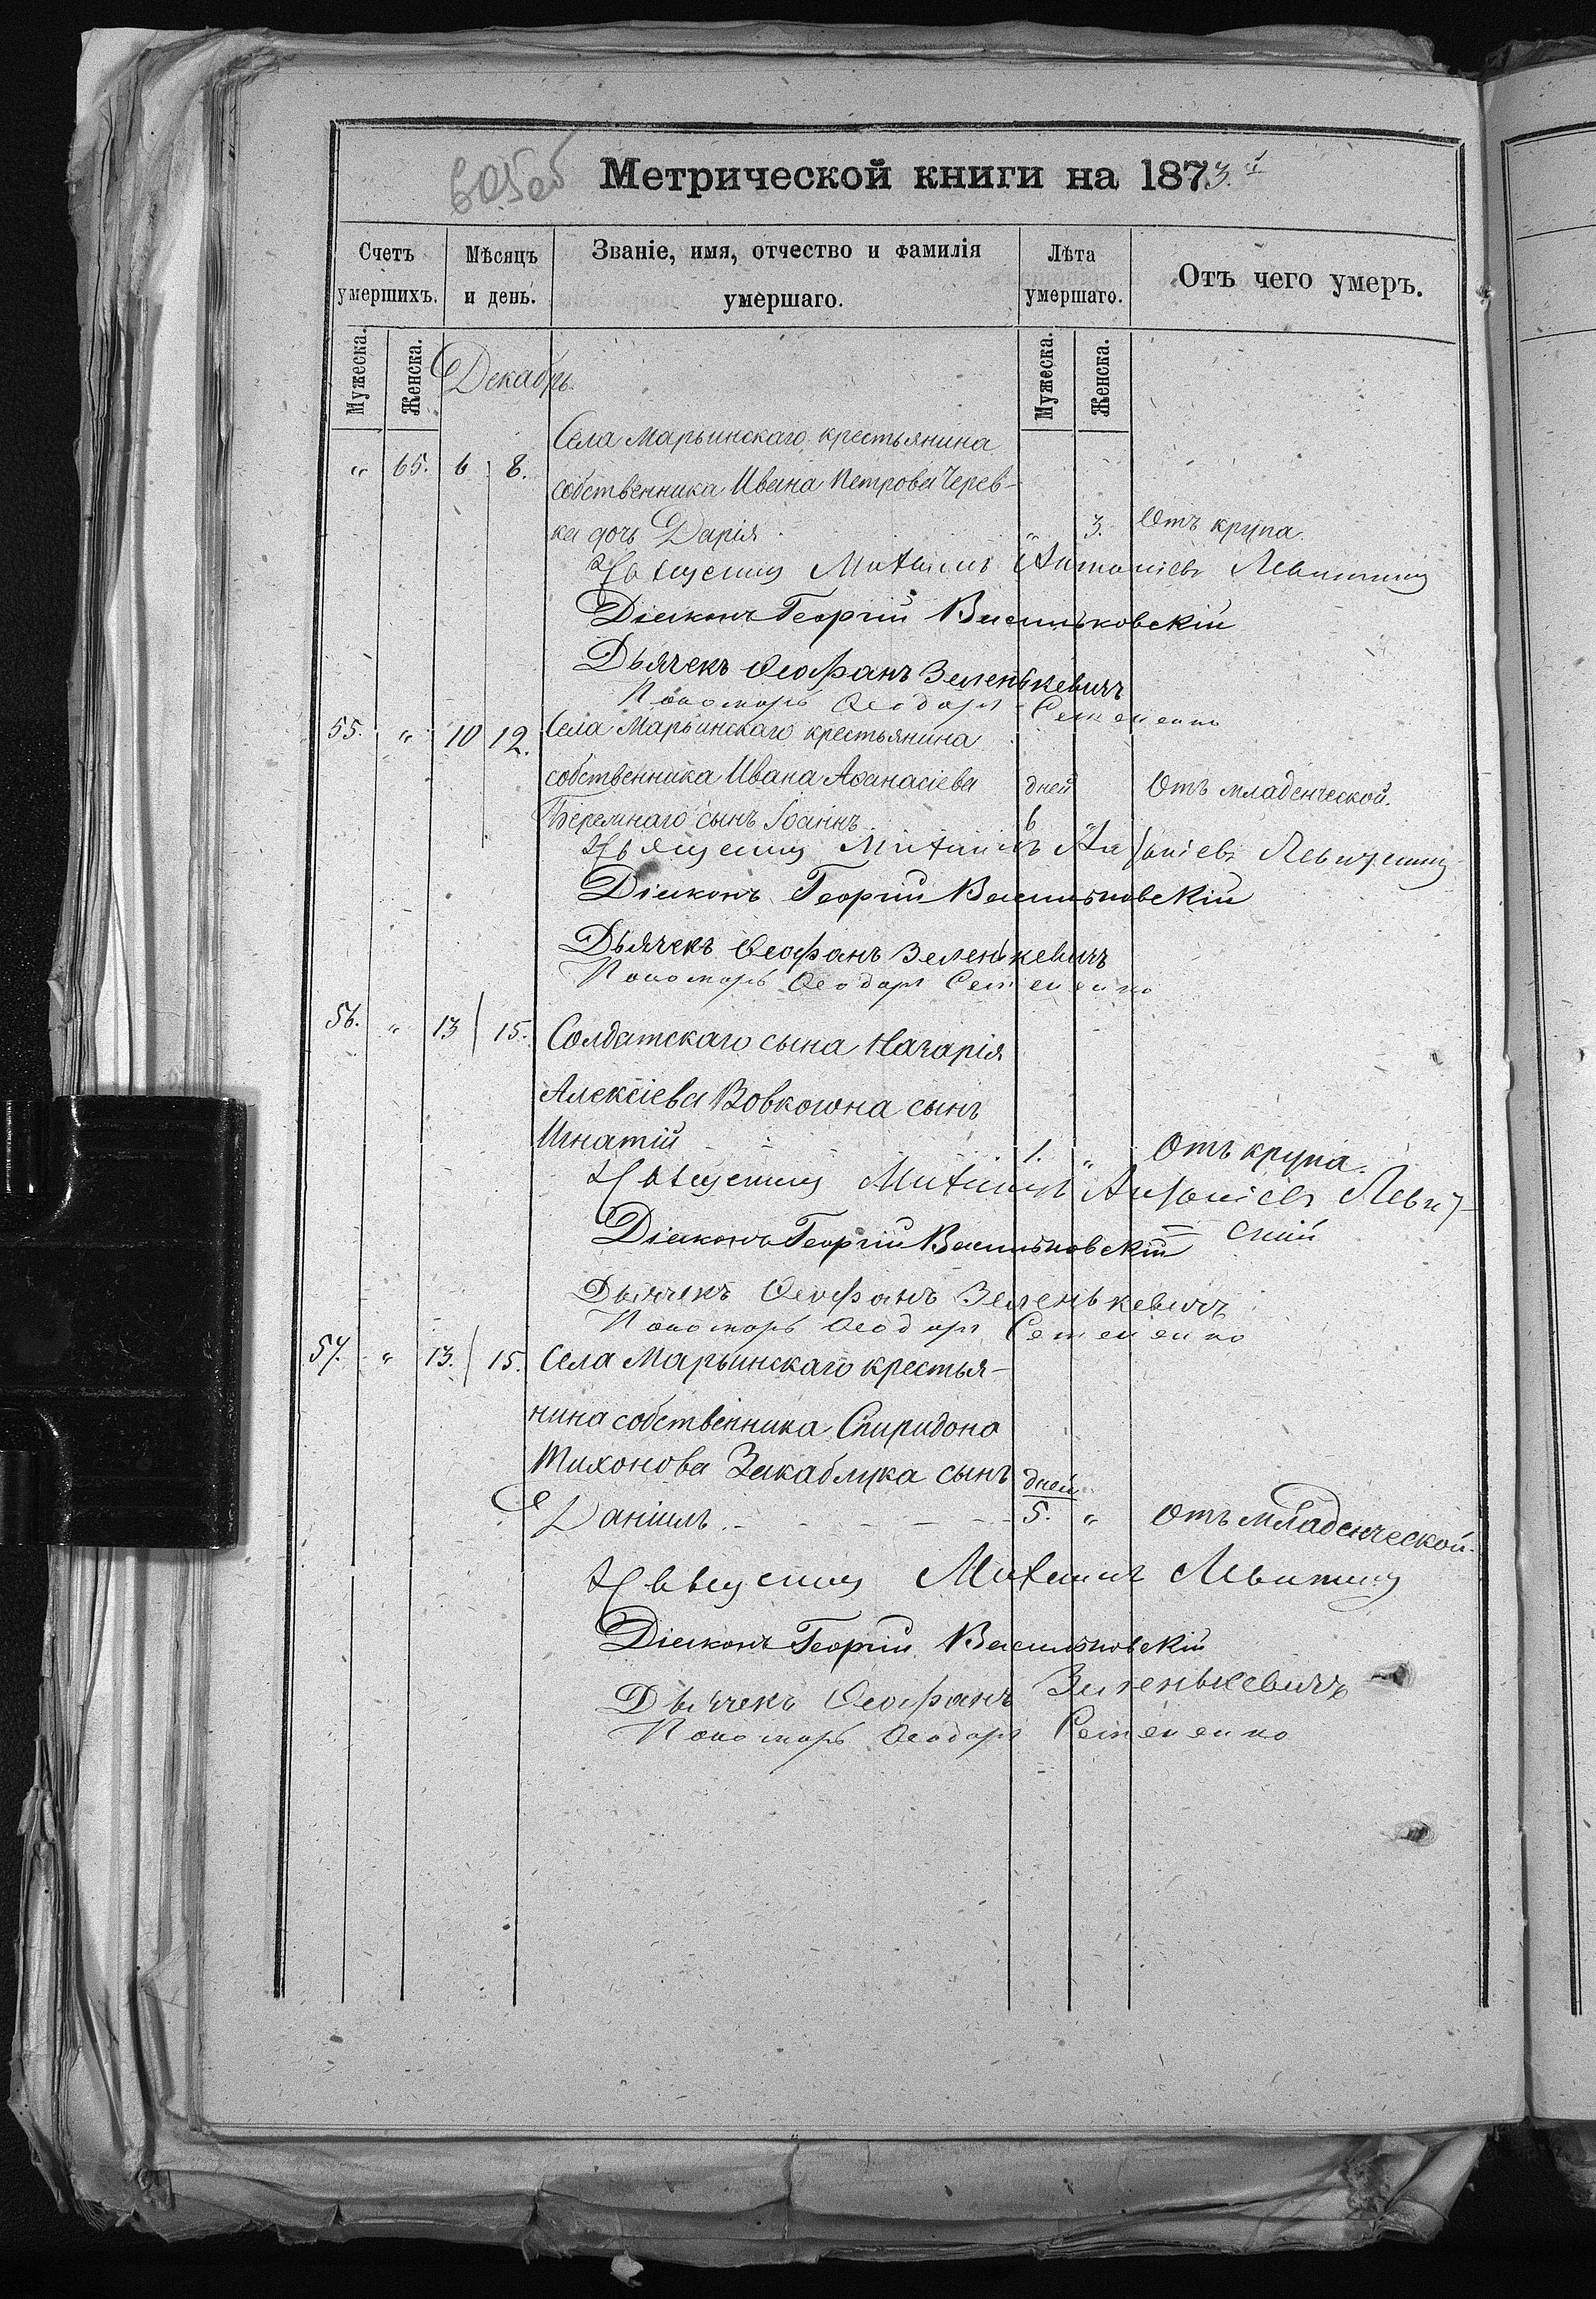 605об
Метрической книги на 1873.й
Счетъ умершихъ.
Мѣсяцъ и день.
Званіе, имя, отчество и фамилія умершаго.
Лѣта умершаго.
Отъ чего умеръ.
Мужеска. Женска. Мужеска. Женска.
Декабрь.
Села Марьинскаго крестьянина
„ 65. 6 8. собственника Ивана Петрова Черев-
ка дочь Дарія „ 3. Отъ крупа.
Священникъ Михаилъ Антоніевъ Левитскій
Діаконъ Георгій Васильковскій
Дьячекъ Ѳеофанъ Зеленькевичъ
Пономарь Ѳеодоръ Семененко
55. „ 10 12. Села Марьинскаго крестьянина
собственника Ивана Аѳанасіева дней Отъ младенческой.
Беремнаго сынъ Іоаннъ 6 „
Священникъ Михаилъ Антоніевъ Левитскій
Діаконъ Георгій Васильковскій
Дьячекъ Ѳеофанъ Зеленькевичъ
Пономарь Ѳеодоръ Семененко
56. „ 13 15. Солдатскаго сына Назарія
Алексіева Вовкогона сынъ
Игнатій 1. „ Отъ крупа.
Священникъ Михаилъ Антоніевъ Левит-
скій
Діаконъ Георгій Васильковскій
Дьячекъ Ѳеофанъ Зеленькевичъ
Пономарь Ѳеодоръ Семененко
57. „ 13. 15. Села Марьинскаго крестья-
нина собственника Спиридона
Тихонова Закаблука сынъ дней
Даніилъ. 5. „ Отъ младенческой.
Священникъ Михаилъ Левитскій
Діаконъ Георгій Васильковскій
Дьячекъ Ѳеофанъ Зеленькевичъ
Пономарь Ѳеодоръ Семененко